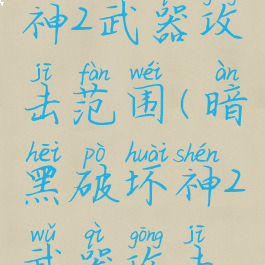 神2武器攻
jī fàn wéi àn
击范围(暗
hēi pò huài shén
黑破坏神2
wǔ qì gōng jī
武器攻击